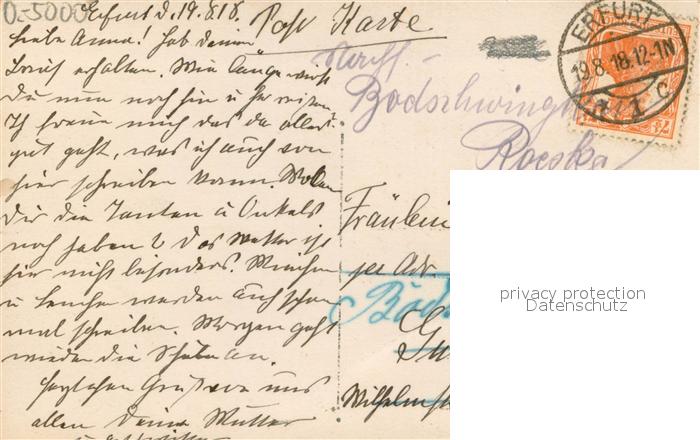 0.-5000
Erfurt d. 19.8.18.
Post Karte
liebe Anna! hab deinen
Brief erhalten. Wie lange wirst
Du nun noch hin u her reisen
Ich freue mich das da alles
gut geht, was ich auch von
hier schreiben kann. Wollen
Dir die Tanten u Onkels
noch haben? Das Wetter ist
hier nicht besonders.
u werden auch schon
mal schreiben. Morgen geht
wieder die Schule an.
herzlichen Gruß von uns
allen Deine Mutter
ERFURT
19.8.18.12-1N
1 c
7½
Bodschwingh
Fräulein
per Adr
Bod
Wilhelmstr
privacy protection
Datenschutz